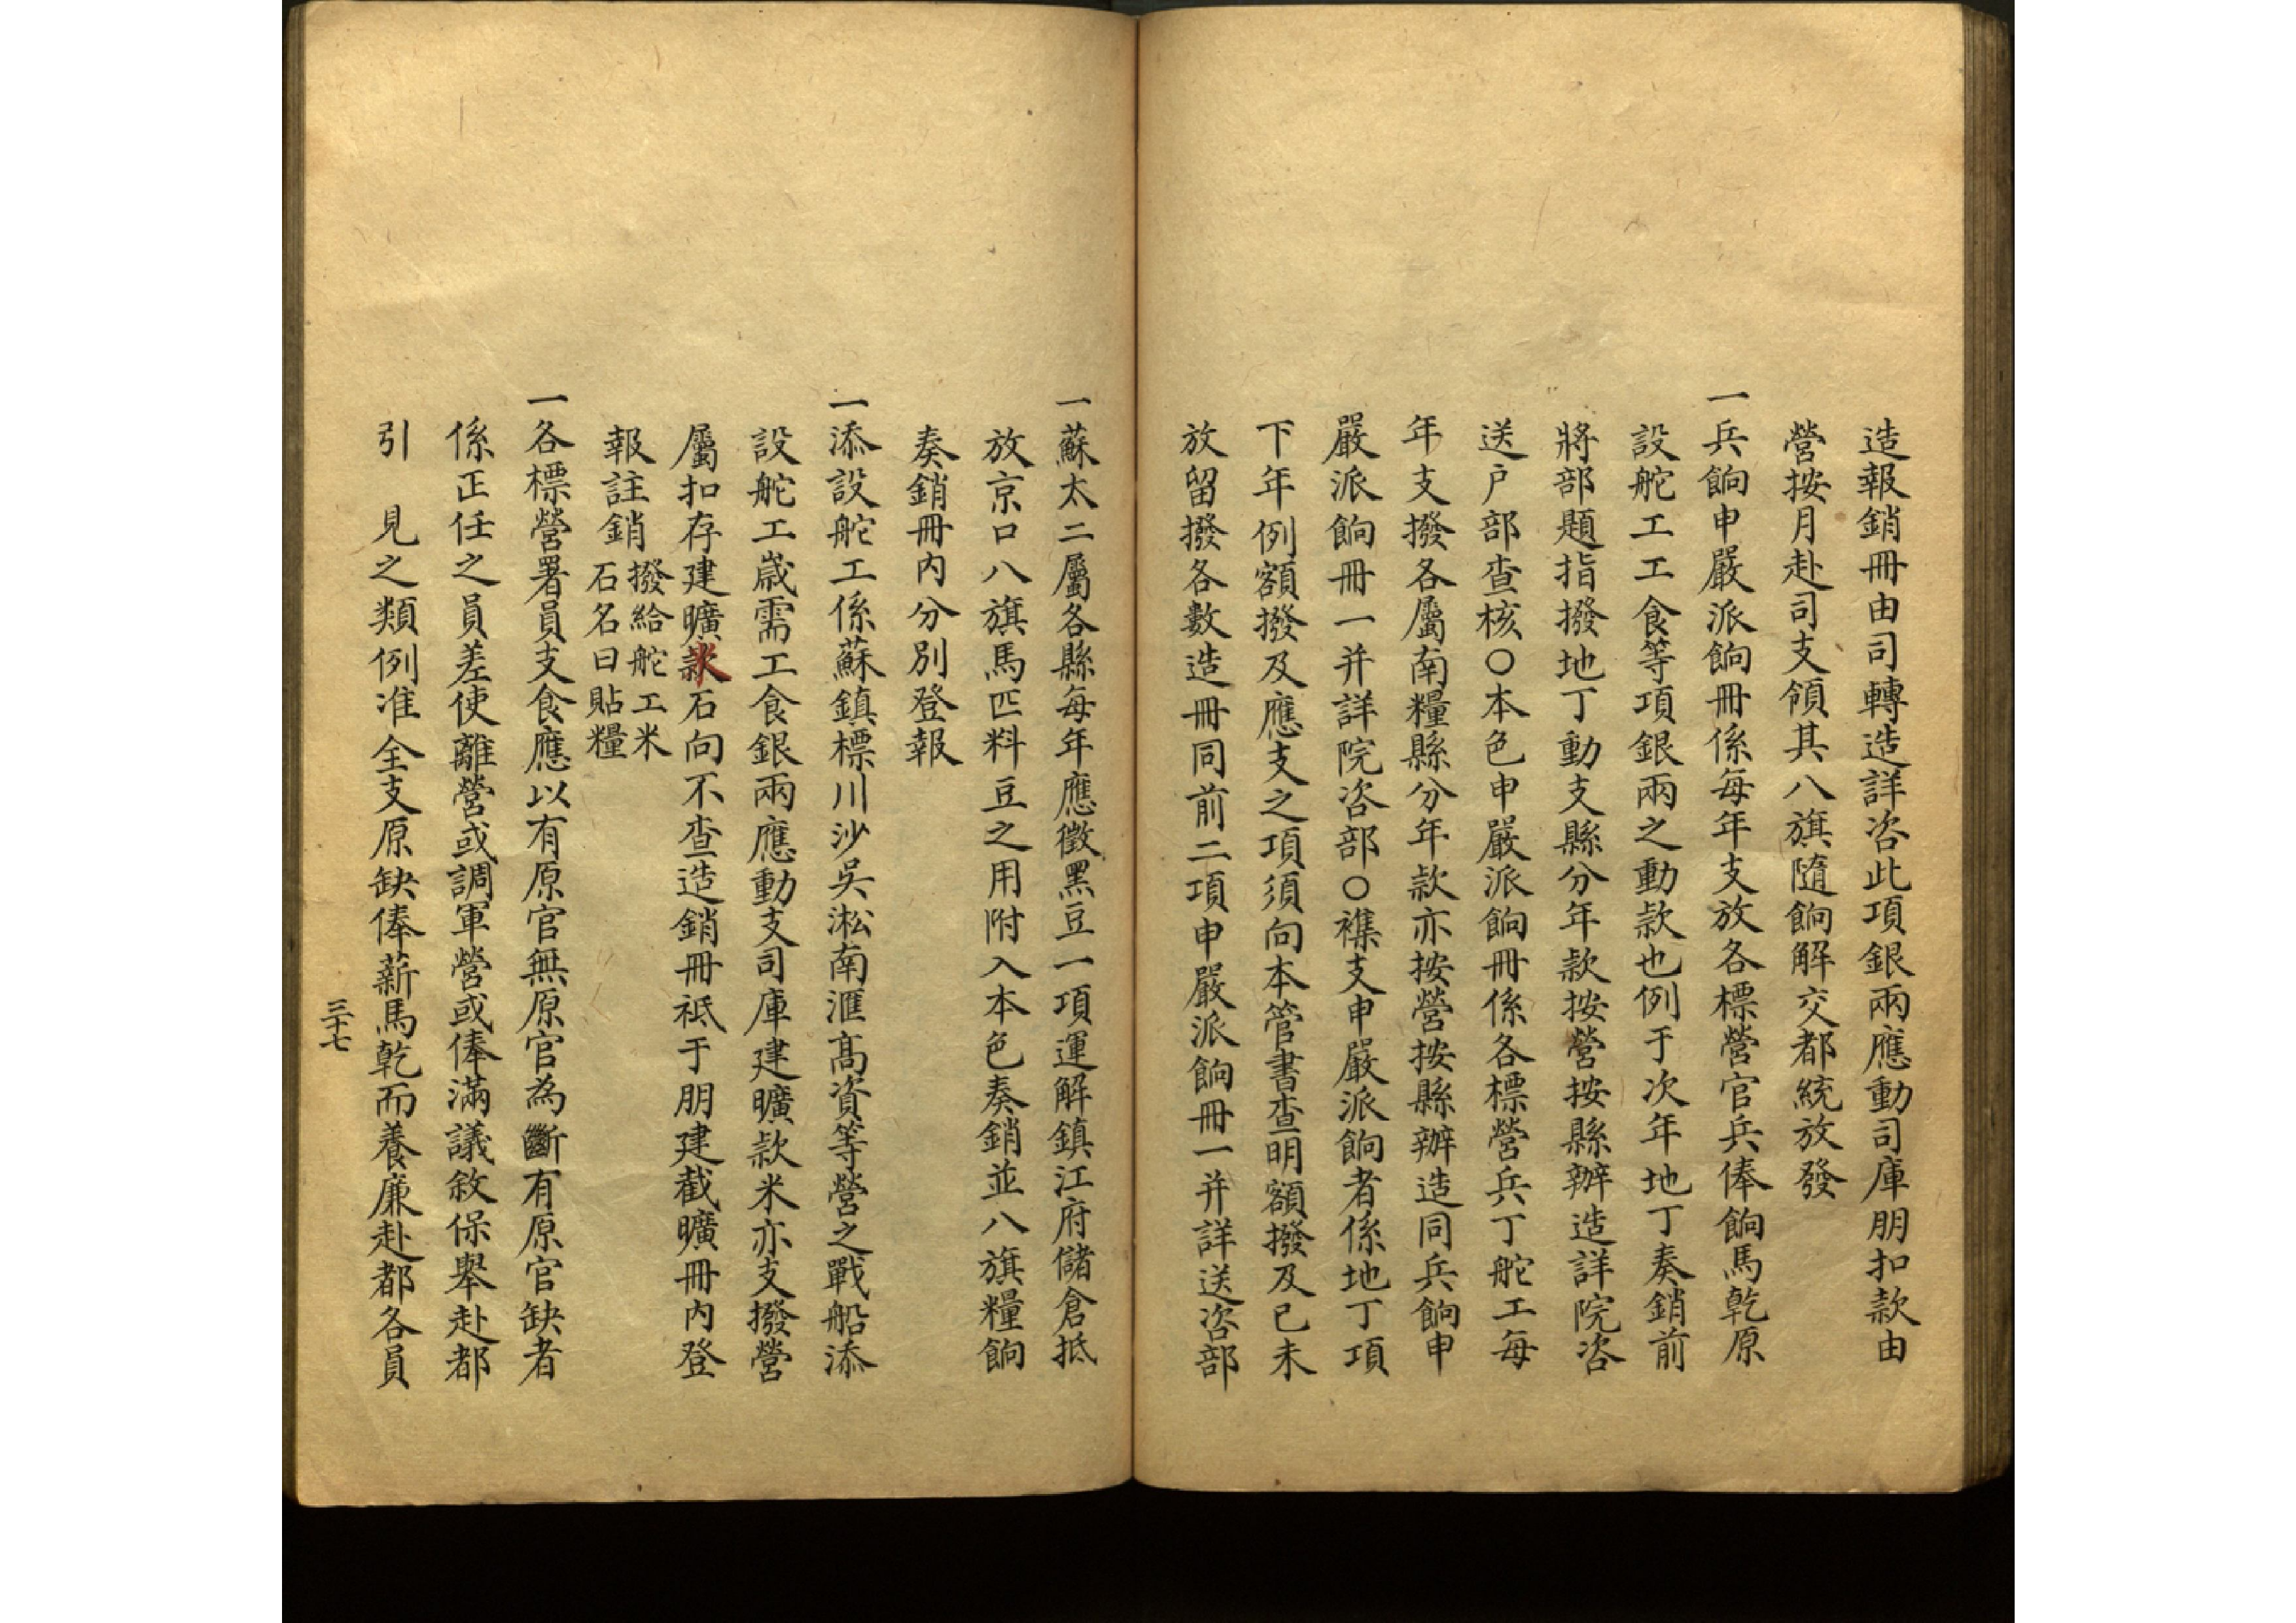 造報銷冊由司轉造詳咨此項銀兩應動司庫朋扣款由
營按月赴司支領其八旗隨餉解交都統放發
一兵餉申嚴派餉冊係每年支放各標營官兵俸餉馬乾原
設舵工工食等項銀兩之動款也例于次年地丁奏銷前
將部題指撥地丁動支縣分年款按營按縣辦造詳院咨
送户部查核〇本色申嚴派餉冊係各標營兵丁舵工每
年支撥各屬南糧縣分年款亦按營按縣辦造同兵餉申
嚴派餉冊一并詳院咨部〇襍支申嚴派餉者係地丁項
下年例額撥及應支之項須向本管書查明額撥及已未
放留撥各數造冊同前二項申嚴派餉冊一并詳送咨部
一蘇太二屬各縣每年應徵黑豆一項運解鎮江府儲倉抵
放京口八旗馬匹料豆之用附入本色奏銷並八旗糧餉
奏銷冊内分別登報
一添設舵工係蘇鎮標川沙吳淞南滙高資等營之戰船添
設舵工歲需工食銀兩應動支司庫建曠款米亦支撥營
屬扣存建曠米石向不查造銷冊祗于朋建截曠冊内登
報註銷撥給舵工米
石名曰貼糧
一各標營署員支食應以有原官無原官為斷有原官缺者
係正任之員差使離營或調軍營或俸滿議敘保舉赴都
引　見之類例准全支原缺俸薪馬乾而養廉赴都各員
三十七